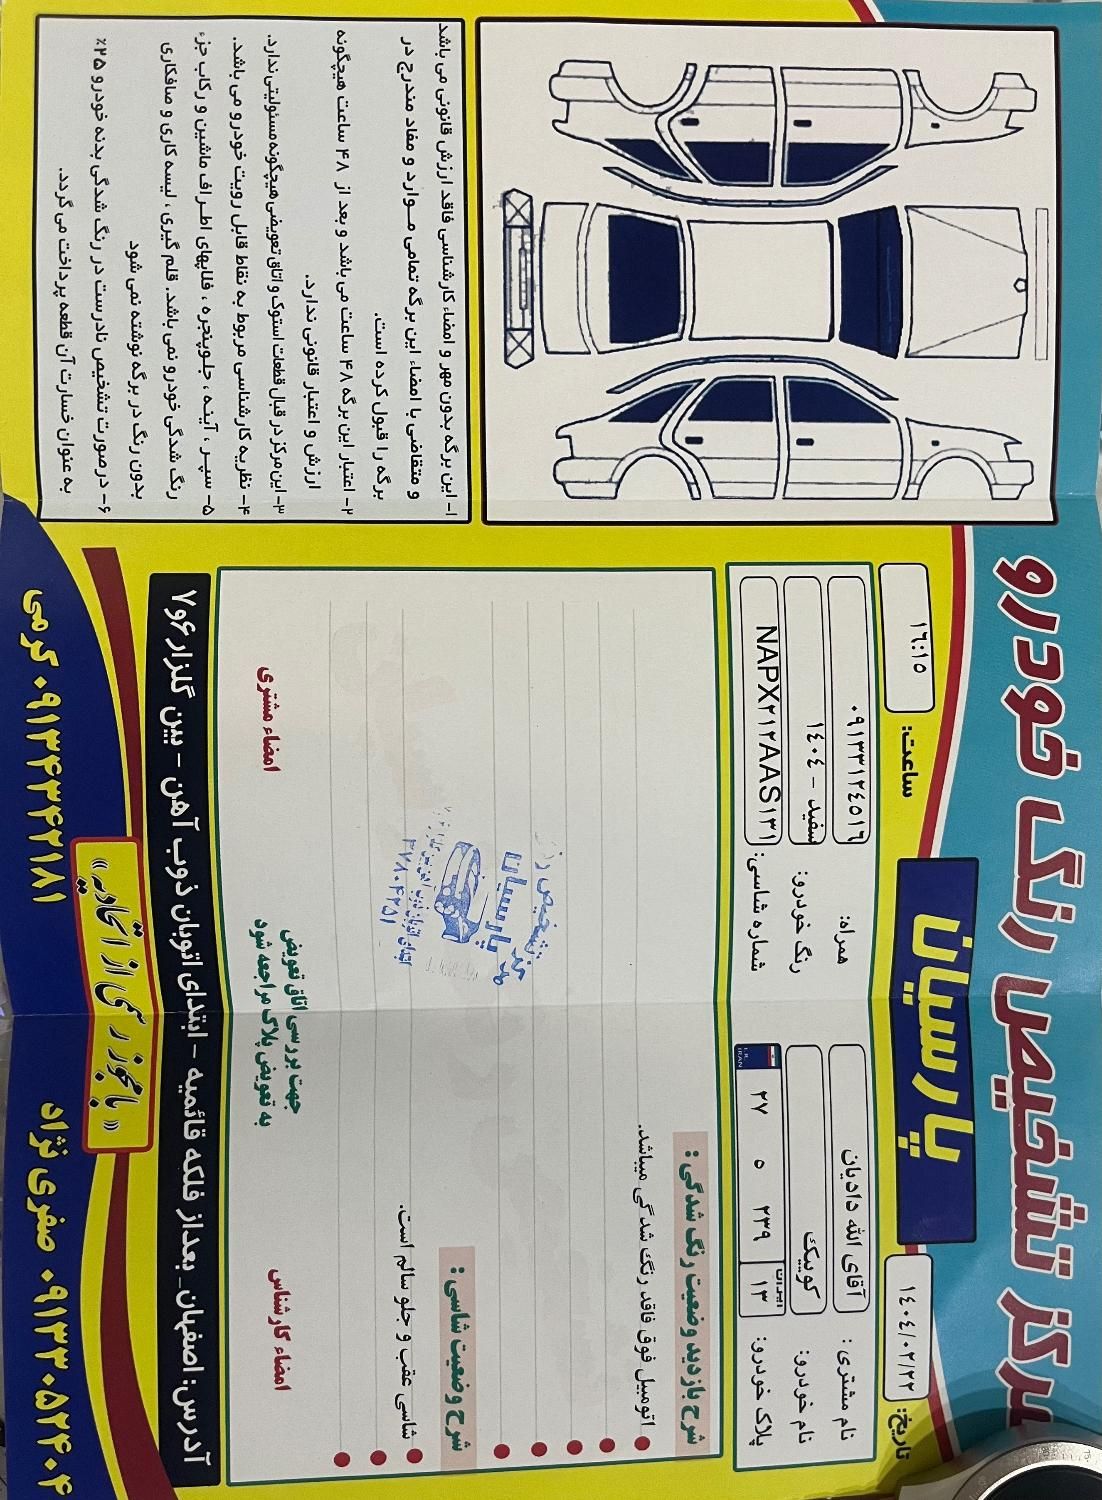 مرکز تشخیص رنگ خودرو
پارسیان
تاریخ: ۱٤۰٤/۰۲/۲۲
ساعت: ۱٦:۱٥
نام مشتری: آقای الله دادیان
همراه: ۰۹۱۳۳۱۲٤٥۱٦
نام خودرو: کوییک
رنگ خودرو: سفید - ۱٤۰٤
پلاک خودرو: ایران ۱۳ ۲۳۹ ٥ ۲۷ I.R. IRAN
شماره شاسی: NAPX۲۱۲AAS۱۳۱
شرح بازدید وضعیت رنگ شدگی:
اتومبیل فوق فاقد رنگ شدگی میباشد.
شرح وضعیت شاسی:
شاسی عقب و جلو سالم است.
تشخیص رنگ
پارسیان
۳۷۸۰۴۲۵۱
امضاء کارشناس
جهت بررسی اتاق تعویض
به تعویض پلاک مراجعه شود
امضاء مشتری
۱- این برگه بدون مهر و امضاء کارشناسی فاقد ارزش قانونی می باشد
و متقاضی با امضاء این برگه تمامی مـوارد و مفاد مندرج در
برگه را قبول کرده است.
۲- اعتبار این برگه ۴۸ ساعت می باشد و بعد از ۴۸ ساعت هیچگونه
ارزش و اعتبار قانونی ندارد.
۳- این مرکز در قبال قطعات استوک و اتاق تعویضی هیچگونه مسئولیتی ندارد.
۴- نظریه کارشناسی مربوط به نقاط قابل رویت خودرو می باشد.
۵- سپـر ، آینـه ، جلـوپنجره ، فلاپهای اطـراف ماشین و رکاب جزء
رنگ شدگی خودرو نمی باشد. قلم گیری ، لیسه کاری و صافکاری
بدون رنگ در برگه نوشته نمی شود
۶- در صورت تشخیص نادرست در رنگ شدگی بدنه خودرو ۲۵٪
به عنوان خسارت آن قطعه پرداخت می گردد.
آدرس: اصفهان_ بعداز فلکه قائمیه - ابتدای اتوبان ذوب آهن - بین گلزار ۶و۷
«با مجوز رسمی از اتحادیه»
۰۹۱۳۳۰۵۲۴۰۴ صفری نژاد
۰۹۱۳۴۳۴۲۱۸۱ کرمی